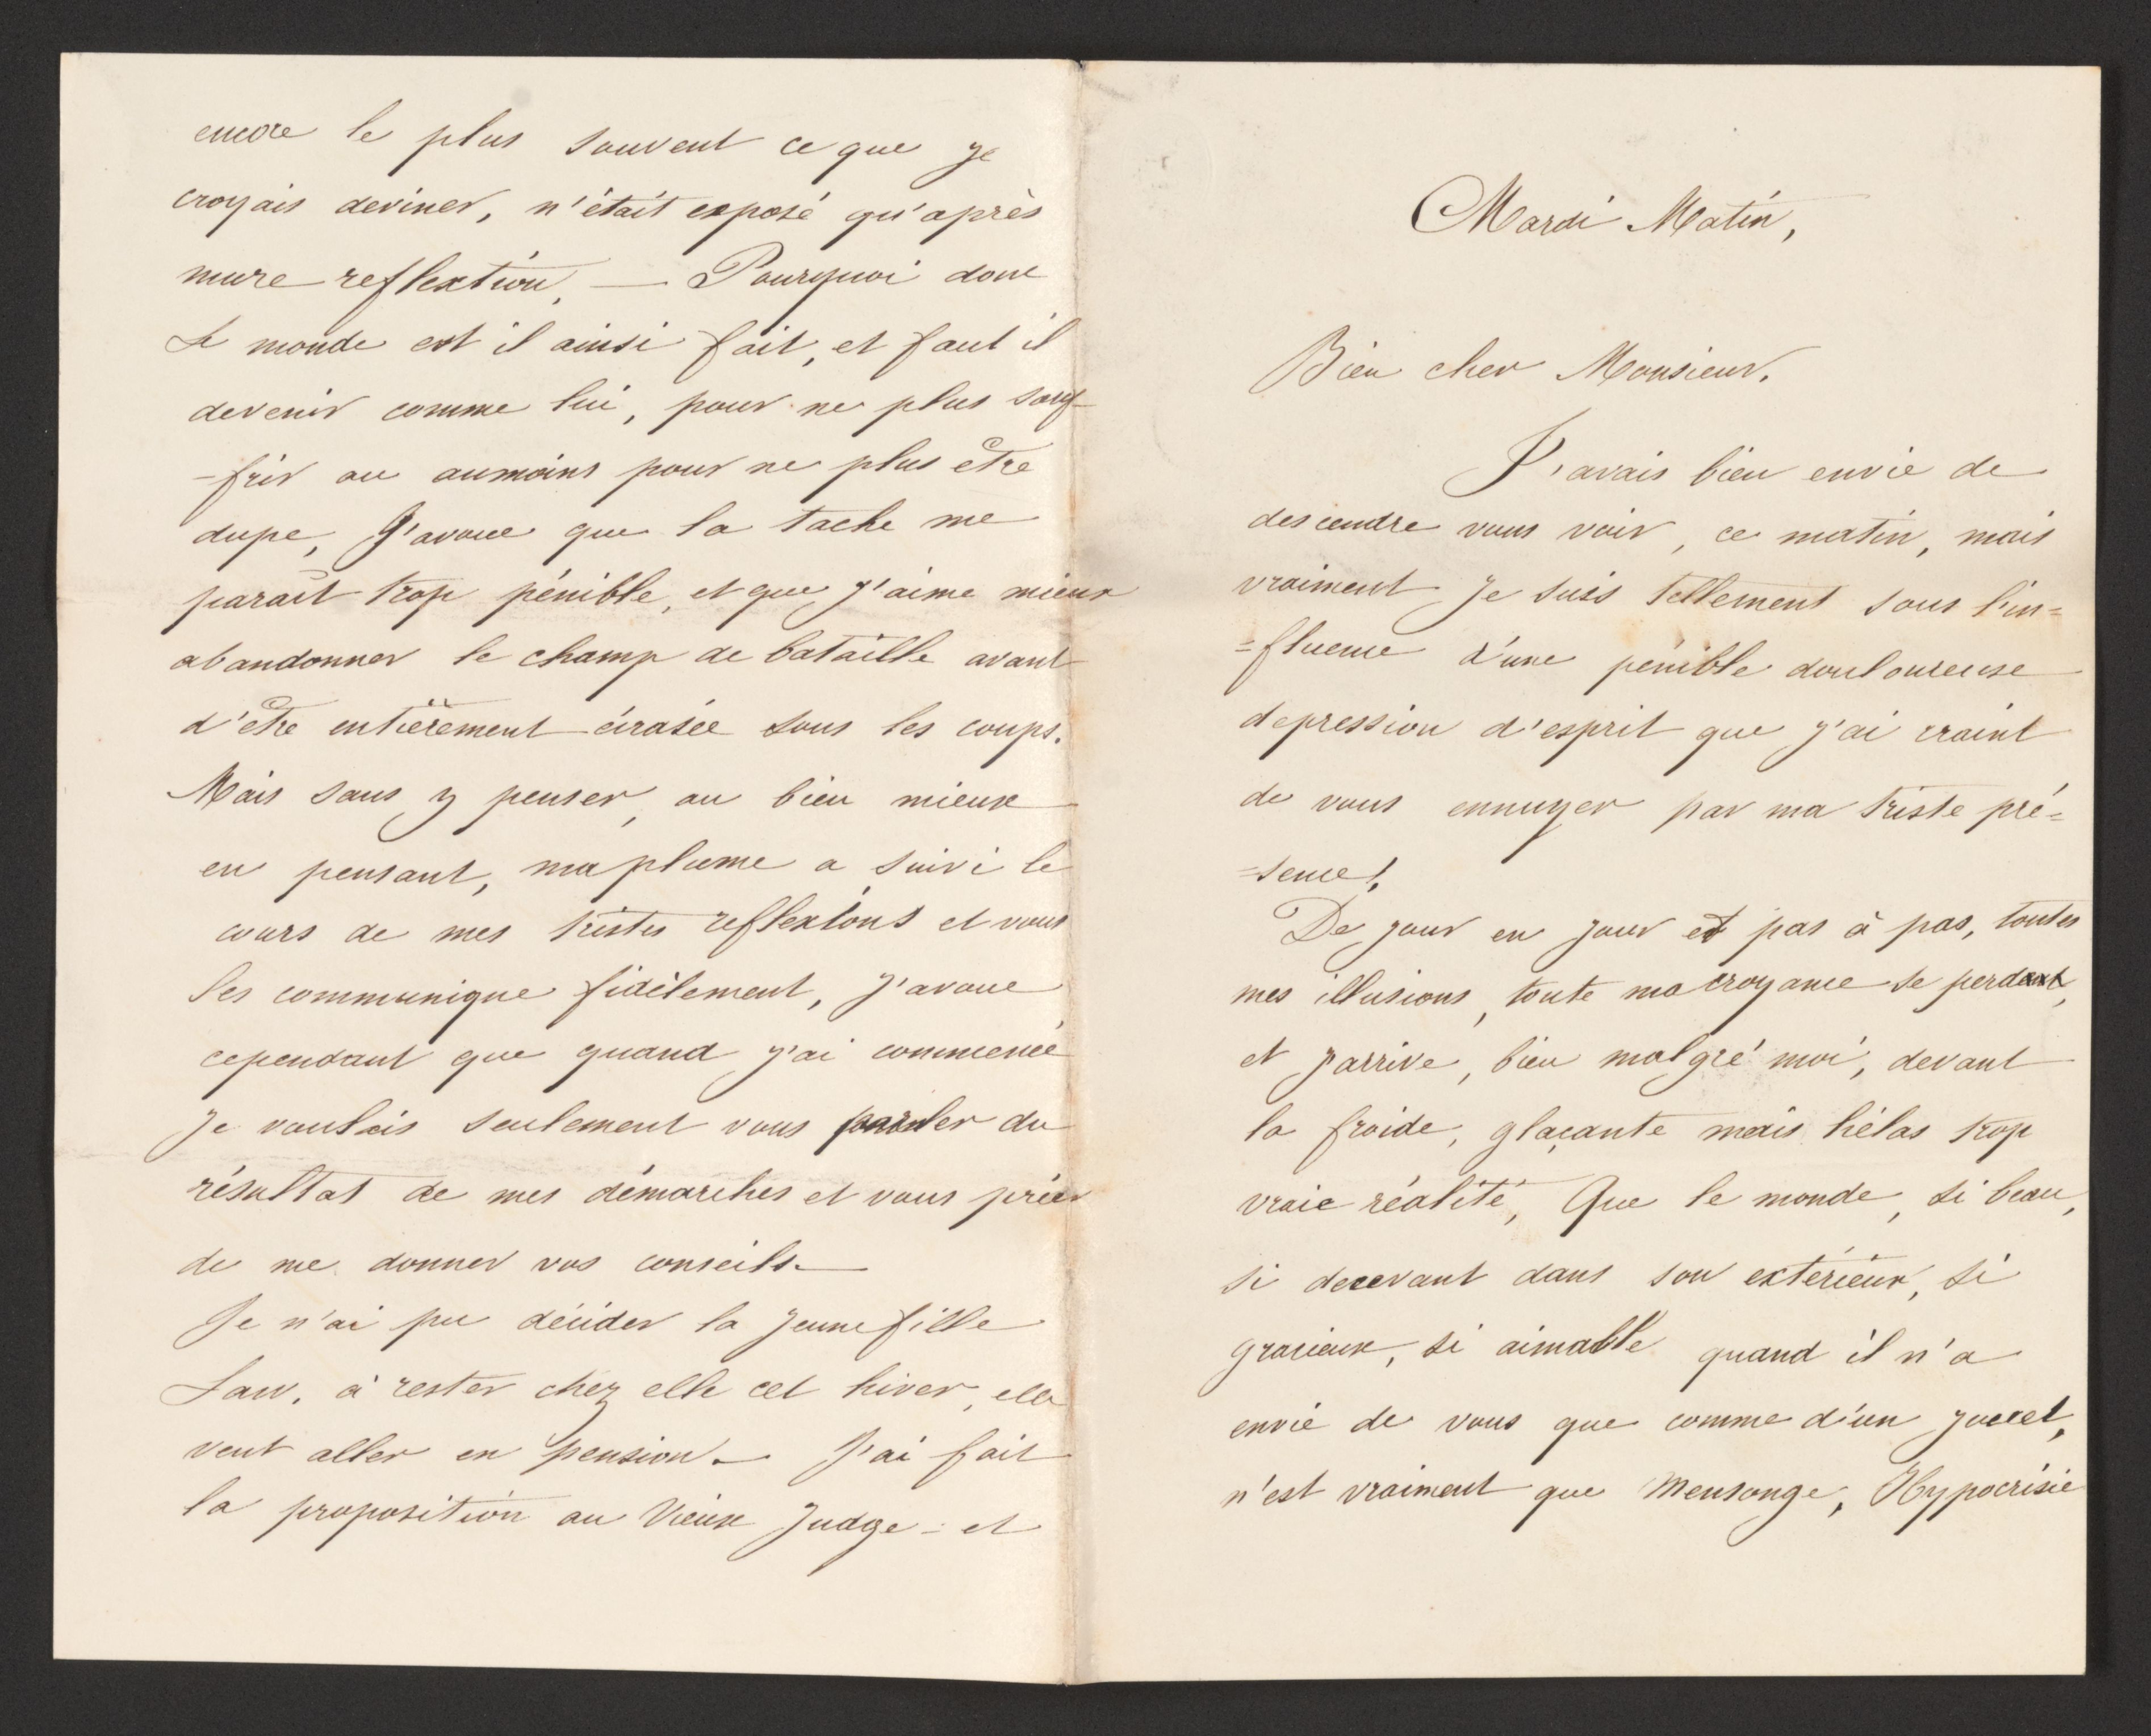 encore le plus souvent ce que je
croyais deviner, n'était exposé qu'après
mure reflextion, — Pourquoi donc
Le monde est il ainsi fait, et faut il
devenir comme lui, pour ne plus souf-
-frir ou aumoins pour ne plus être
dupe, J'avoue que la tache me
paraît trop pénible, et que j'aime mieux
abandonner le champ de bataille avant
d'être entièrement écrasée sous les coups.
Mais sans y penser, ou bien mieux
en pensant, ma plume a suivi le
cours de mes tristes reflextions et vous
les communique fidèlement, J'avoue
cependant que quand j'ai commencé
Je voulais seulement vous parler du
résultat de mes démarches et vous prier
de me donner vos conseils—
Je n'ai pu décider la jeune fille
Law, à rester chez elle cet hiver, elle
veut aller en pension — J'ai fait
la proposition au Vieux Judge - et
Mardi Matin,
Bien cher Monsieur,
J'avais bien envie de
descendre vous voir, ce matin, mais
vraiment Je suis tellement sous l'in=
=fluence d'une pénible douloureuse
depression d'esprit que j'ai craint
de vous ennuyer par ma triste pré=
=sence!,
De jour en jour et pas à pas, toutes
mes illusions, toute ma croyance se perdent,
et J'arrive, bien malgré moi, devant
la froide, glaçante mais hélas trop
vraie réalité, Que le monde, si beau,
si decevant dans son extérieur, si
gracieux, si aimable quand il n'a
envie de vous que comme d'un jouet,
n'est vraiment que Mensonge, Hypocrisie